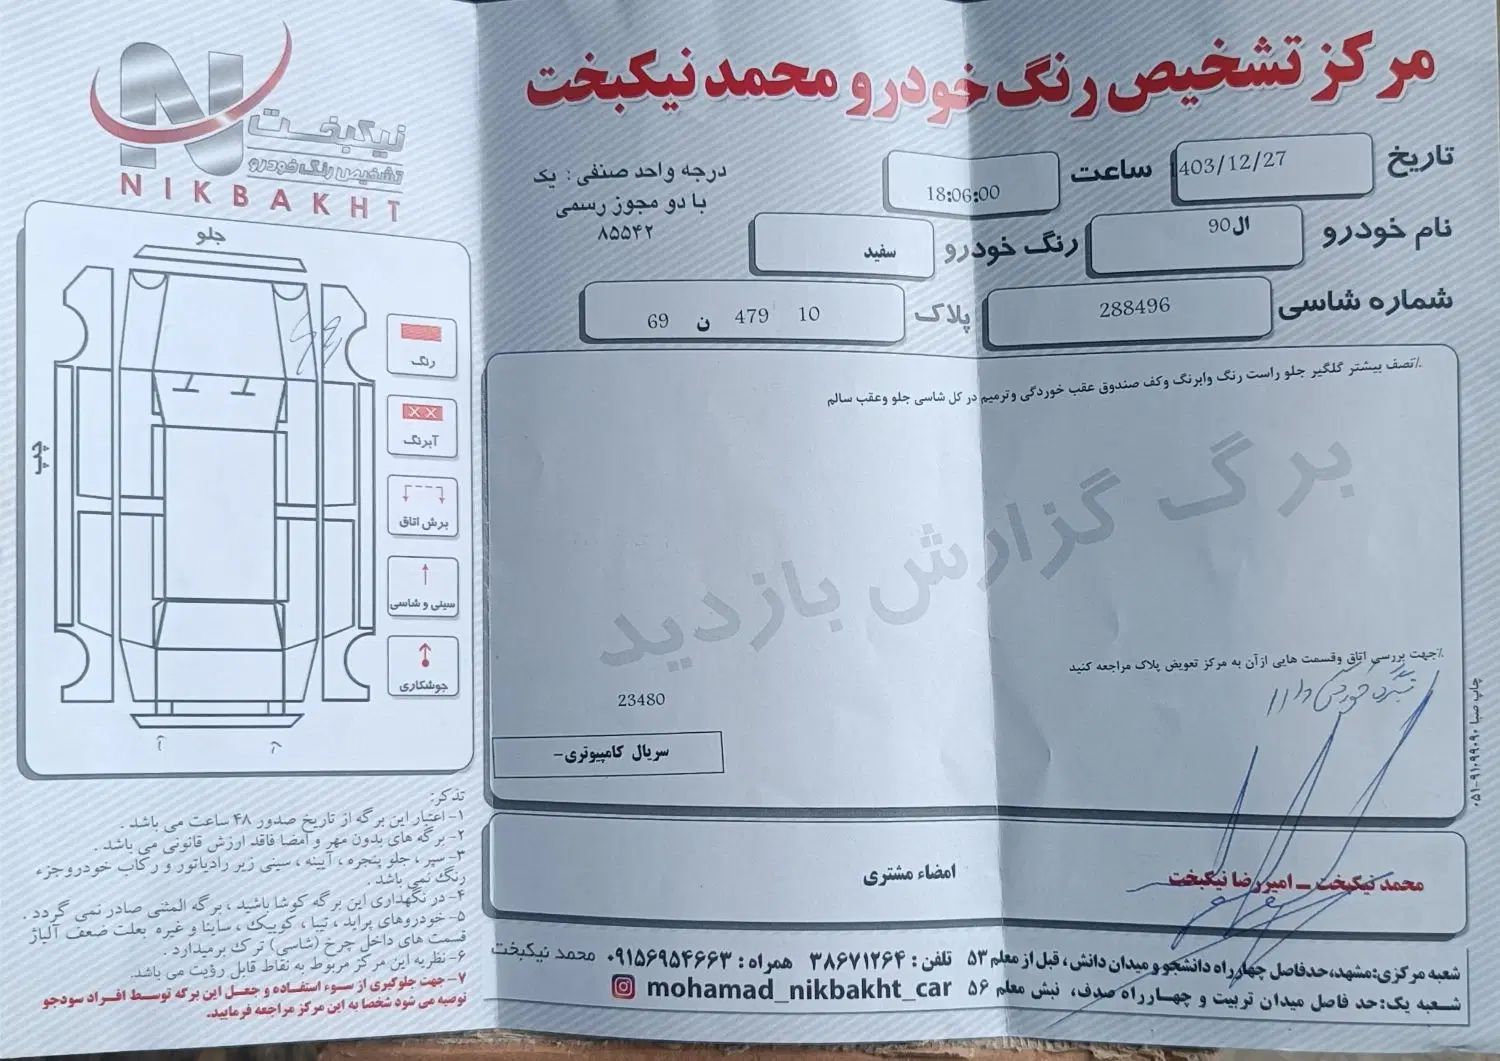 مرکز تشخیص رنگ خودرو محمد نیکبخت
نیکبخت
تشخیص رنگ خودرو
NIKBAKHT
تاریخ 1403/12/27 ساعت 18:06:00
درجه واحد صنفی : یک
با دو مجوز رسمی
۸۵۵۴۲
نام خودرو ال90 رنگ خودرو سفید
شماره شاسی 288496 پلاک 10 479 ن 69
٪نصف بیشتر گلگیر جلو راست رنگ وابرنگ وکف صندوق عقب خوردگی وترمیم در کل شاسی جلو وعقب سالم
برگ گزارش بازدید
٪جهت بررسی اتاق وقسمت هایی ازآن به مرکز تعویض پلاک مراجعه کنید
23480
سریال کامپیوتری-
محمد نیکبخت - امیررضا نیکبخت
امضاء مشتری
شعبه مرکزی:مشهد،حدفاصل چهارراه دانشجو و میدان دانش، قبل از معلم ۵۳ تلفن : ۳۸۶۷۱۲۶۴ همراه : ۰۹۱۵۶۹۵۴۶۶۳ محمد نیکبخت
شعبه یک:حد فاصل میدان تربیت و چهارراه صدف، نبش معلم ۵۶ mohamad_nikbakht_car
چاپ صبا ۰۵۱-۹۱۰۹۹۰۹۰
جلو
چپ
رنگ
آبرنگ
برش اتاق
سینی و شاسی
جوشکاری
تذکر:
۱- اعتبار این برگه از تاریخ صدور ۴۸ ساعت می باشد .
۲- برگه های بدون مهر و امضا فاقد ارزش قانونی می باشد .
۳- سپر ، جلو پنجره ، آیینه ، سینی زیر رادیاتور و رکاب خودرو جزء
رنگ نمی باشد .
۴- در نگهداری این برگه کوشا باشید ، برگه المثنی صادر نمی گردد .
۵- خودروهای پراید ، تیبا ، کوییک ، ساینا و غیره بعلت ضعف آلیاژ
قسمت های داخل چرخ (شاسی) ترک برمیدارد .
۶- نظریه این مرکز مربوط به نقاط قابل رؤیت می باشد.
۷- جهت جلوگیری از سوء استفاده و جعل این برگه توسط افراد سودجو
توصیه می شود شخصا به این مرکز مراجعه فرمایید.